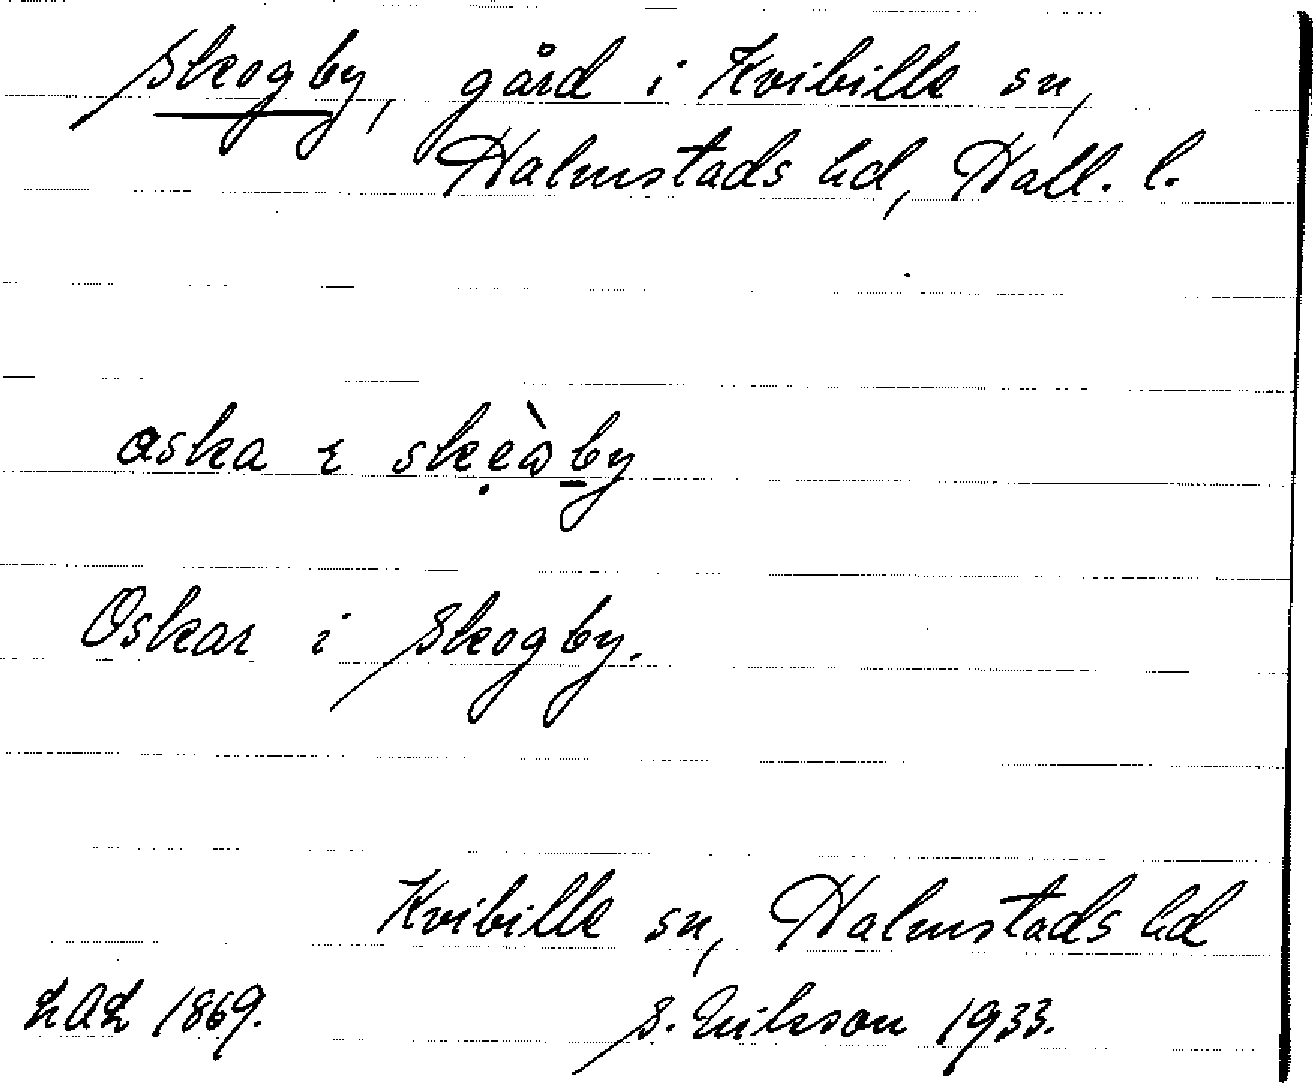 Skogby, gård i Kvibille sn,
Halmstads hd, Hall. l.
aska
Oskar i Skogby.
Kvibille sn, Halmstads hd
LAL 1869. S. Erikson 1933.